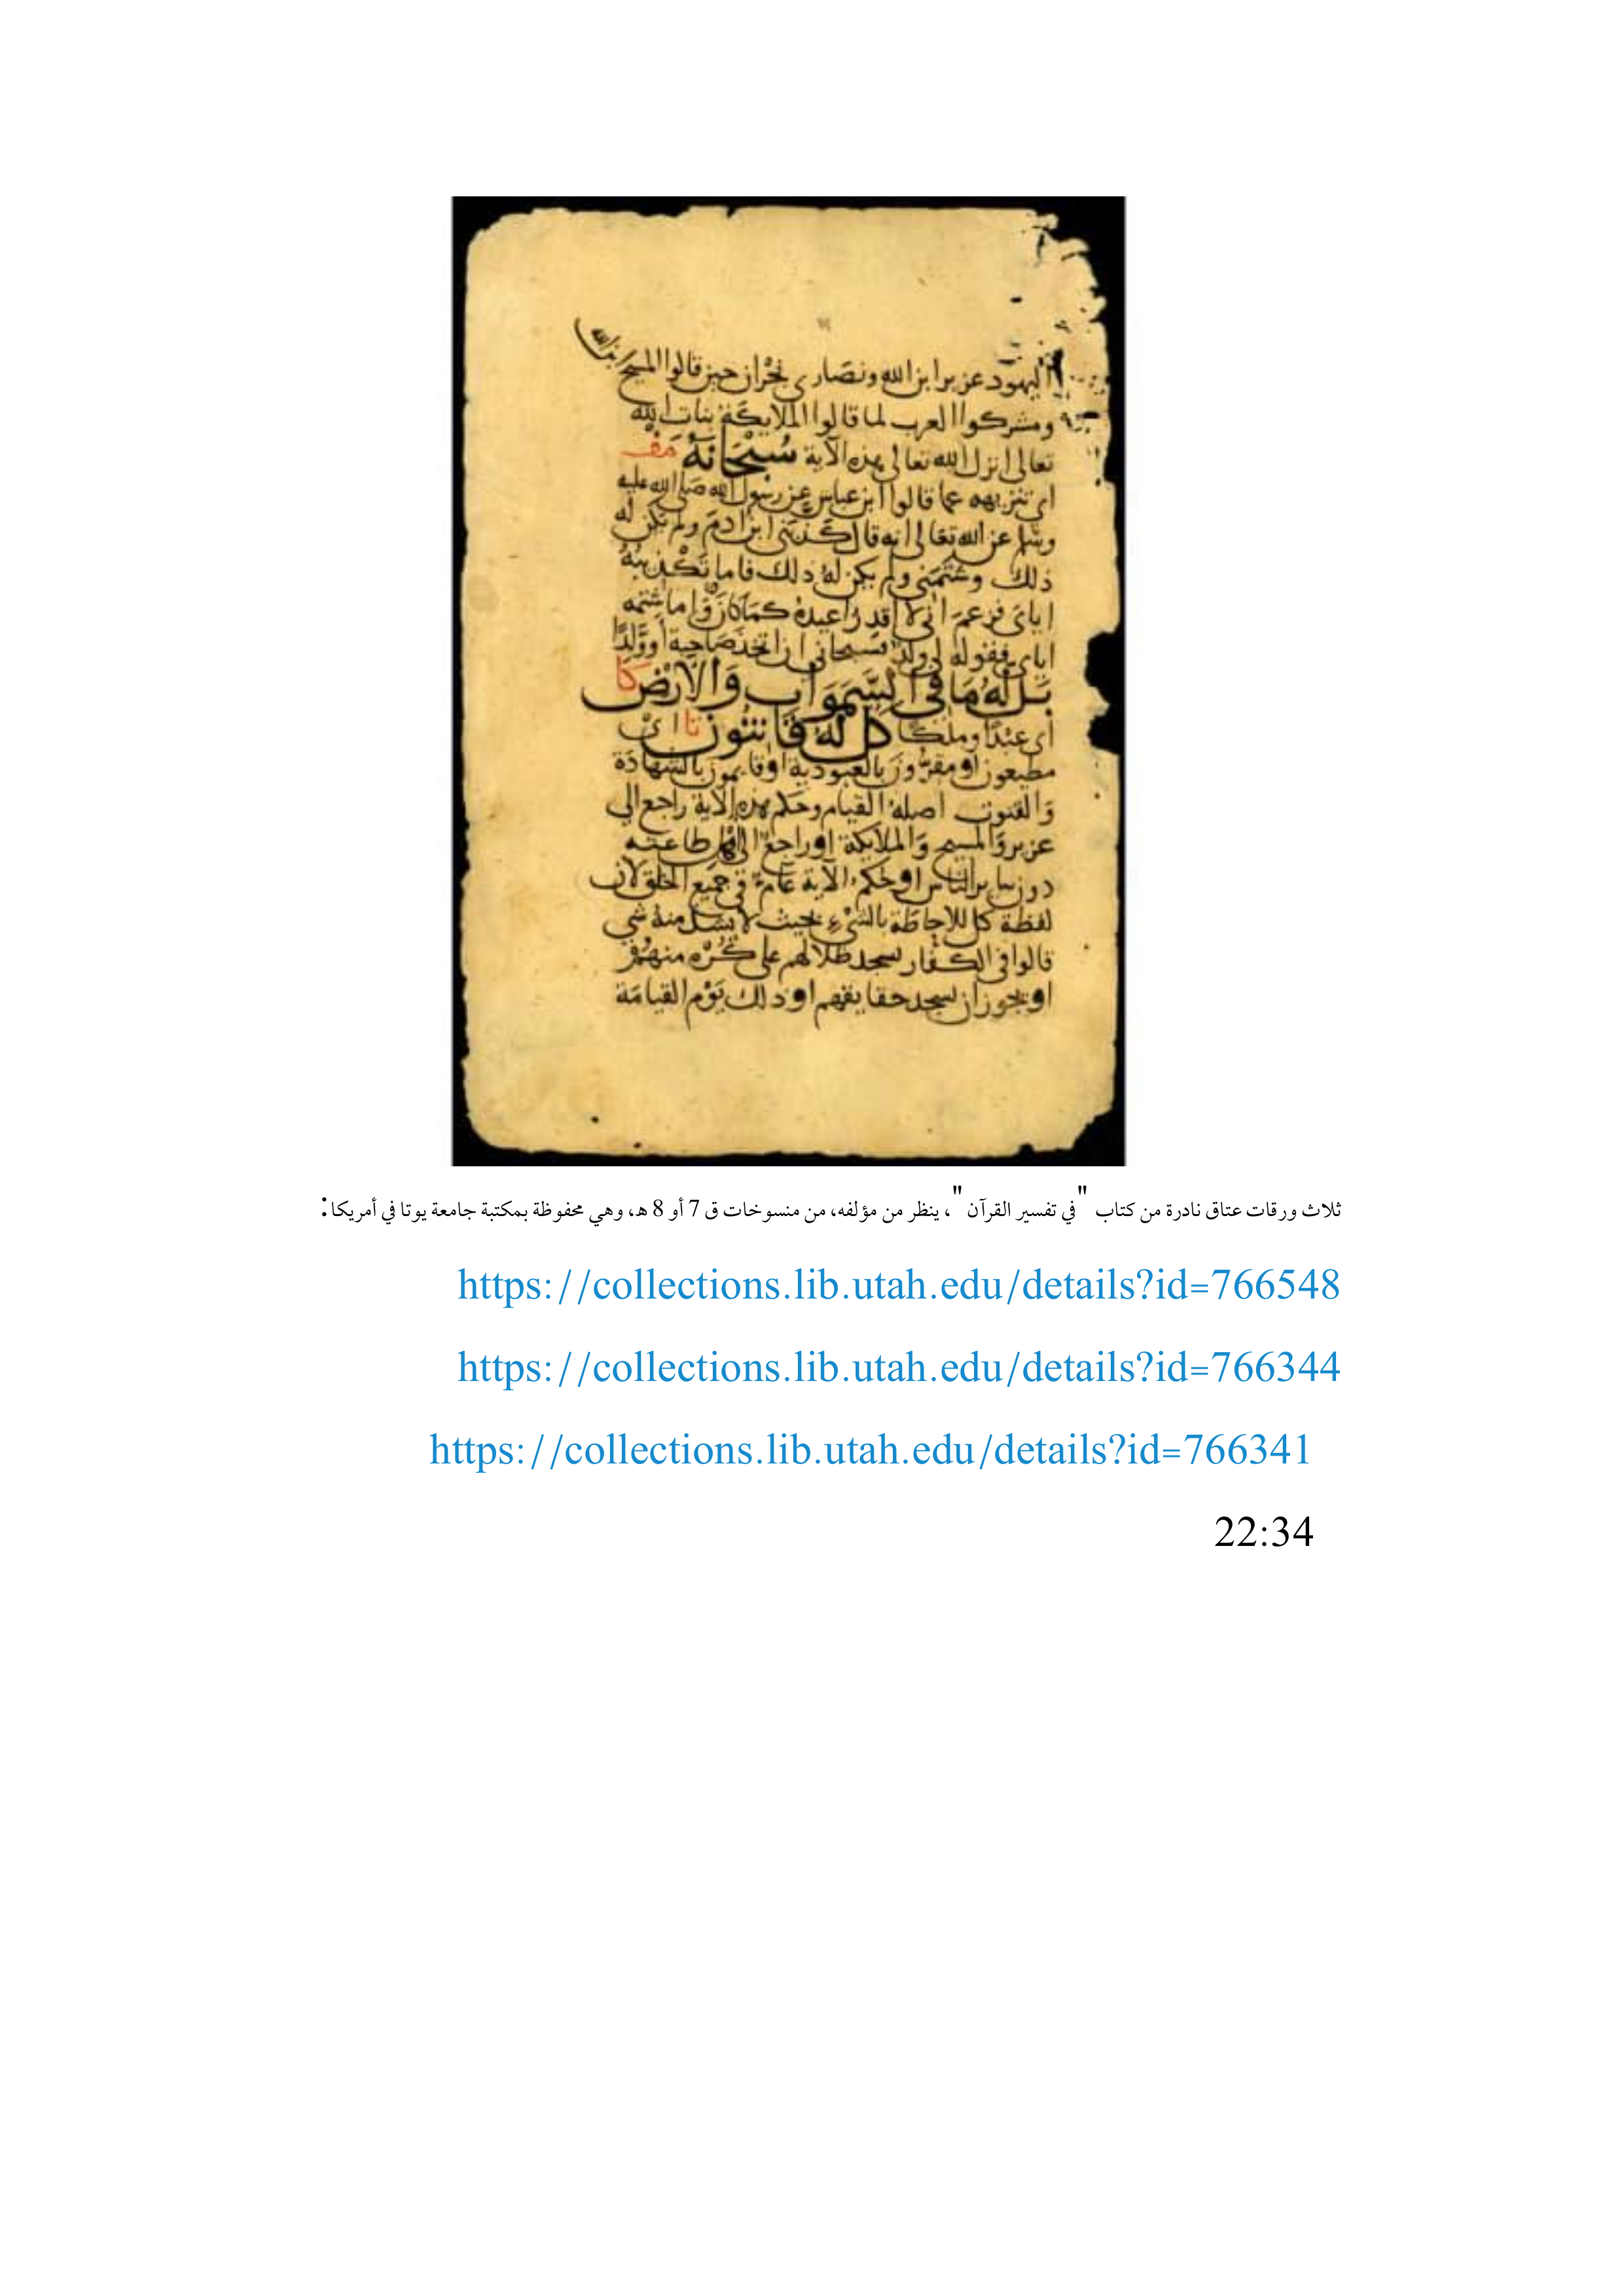 اليهود عزير ابن الله ونصارى نجران حين قالوا المسيح ابن الله
ومشركوا العرب لما قالوا الملايكة بنات الله
تعالى انزل الله تعالى هذه الآية سُبْحَانَهُ
اي تنزيهه عما قالوا ابن عباس عن رسول الله صلى الله عليه
وسلم عن الله تعالى انه قال كذبني ابن ادم ولم يكن له
ذلك وشتمني ولم يكن له ذلك فاما تكذيبه
اياي فزعم اني لا اقدر اعيده كما كان واما شتمه
اياي فقوله لي ولد فسبحاني ان اتخذ صاحبة او ولدا
بَل لَهُ مَا فِي السَّمَوَاتِ وَالْأَرْضِ
اي عبدا وملكا كل لَهُ قَانِتُونَ اي
مطيعون او مقرون بالعبودية او قايمون بالشهادة
والقنوت اصله القيام وحكم هذه الآية راجع الى
عزير والمسيح والملايكة او راجع الى اهل طاعته
دون ساير الناس او حكم الآية عامة في جميع الخلق لان
لفظة كل للاحاطة بالشيء بحيث لا يشذ منه شي
قالوا في الكفار تسجد ظلالهم على كره منهم
او يجوز ان تسجد حقايقهم او ذلك يَوْم القيامة
ثلاث ورقات عتاق نادرة من كتاب "في تفسير القرآن"، ينظر من مؤلفه، من منسوخات ق 7 أو 8 هـ، وهي محفوظة بمكتبة جامعة يوتا في أمريكا:
https://collections.lib.utah.edu/details?id=766548
https://collections.lib.utah.edu/details?id=766344
https://collections.lib.utah.edu/details?id=766341
22:34